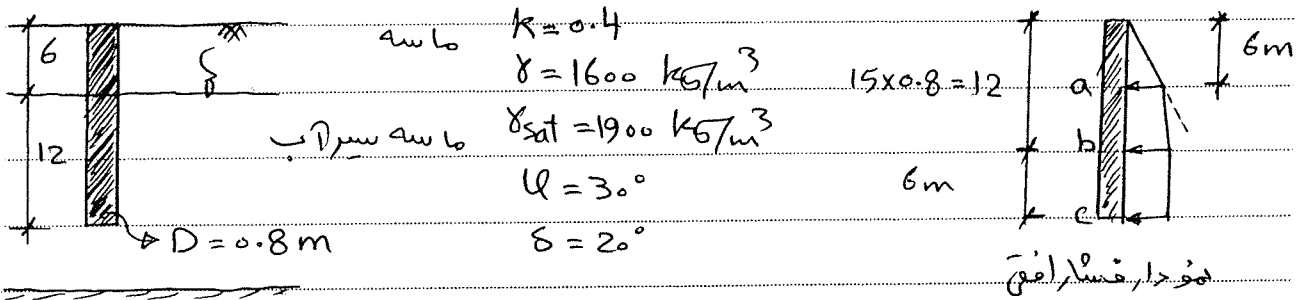 6
12
D = 0.8 m
ماسه
ماسه سیر آب
K = 0.4
γ = 1600 kg/m³
γsat = 1900 kg/m³
φ = 30°
δ = 20°
15×0.8 = 12
6m
6m
a
b
c
نمودار فشار افقی